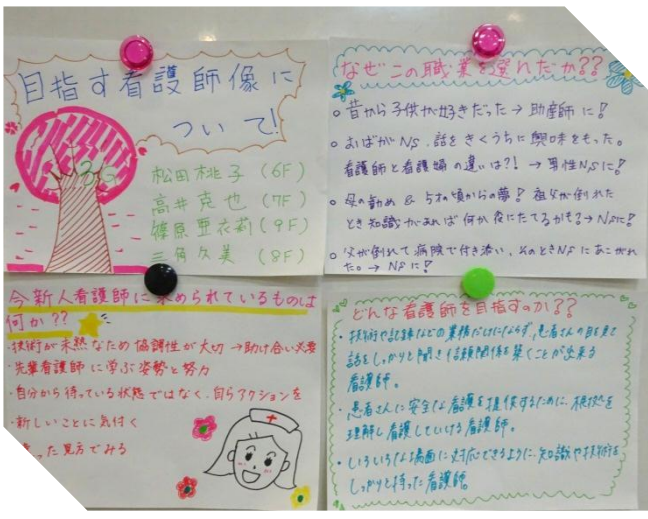 目指す看護師像に
ついて!
松田桃子 (6F)
高井克也 (7F)
篠原亜衣莉 (9F)
三角久美 (8F)
なぜこの職業を選んだか??
昔から子供が好きだった→助産師に!
おばがNS、話をきくうちに興味をもった。
看護師と看護婦の違いは?! → 男性NSに!
母の勧め & 5才の頃からの夢! 祖父が倒れた
とき知識があれば何か役にたてるかも?→NSに!
父が倒れて病院で付き添い、そのときNSにあこがれ
た。→ NSに!
今新人看護師に求められているものは
何か??
・技術が未熟なため協調性が大切 → 助け合い必要
・先輩看護師に学ぶ姿勢と努力
・自分から待っている状態ではなく、自らアクションを
・新しいことに気付く
った見方でみる
どんな看護師を目指すのか??
・技術や記録などの業務だけにならず、患者さんの目を見て
話をしっかりと聞き信頼関係を築くことが出来る
看護師。
・患者さんに安全な看護を提供するために、根拠を
理解し看護していける看護師。
・いろいろな場面に対応できるように、知識や技術を
しっかりと持った看護師。